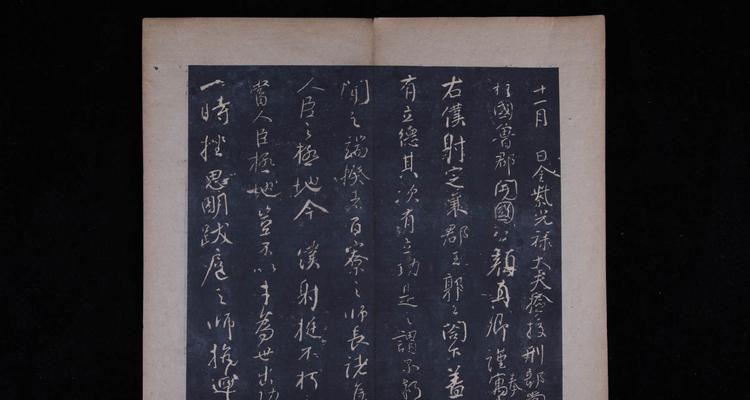 十一月 日金紫光祿大夫檢挍刑部尚
柱國魯郡開國公顏真卿謹奉寓
右僕射定襄郡王郭公閤下蓋
有立德其次有立功是之謂不朽
聞之端揆者百寮之師長諸侯
人臣之極地今僕射挺不朽
當人臣極地豈不以才為世出功
一時挫思明跋扈之師抗迴